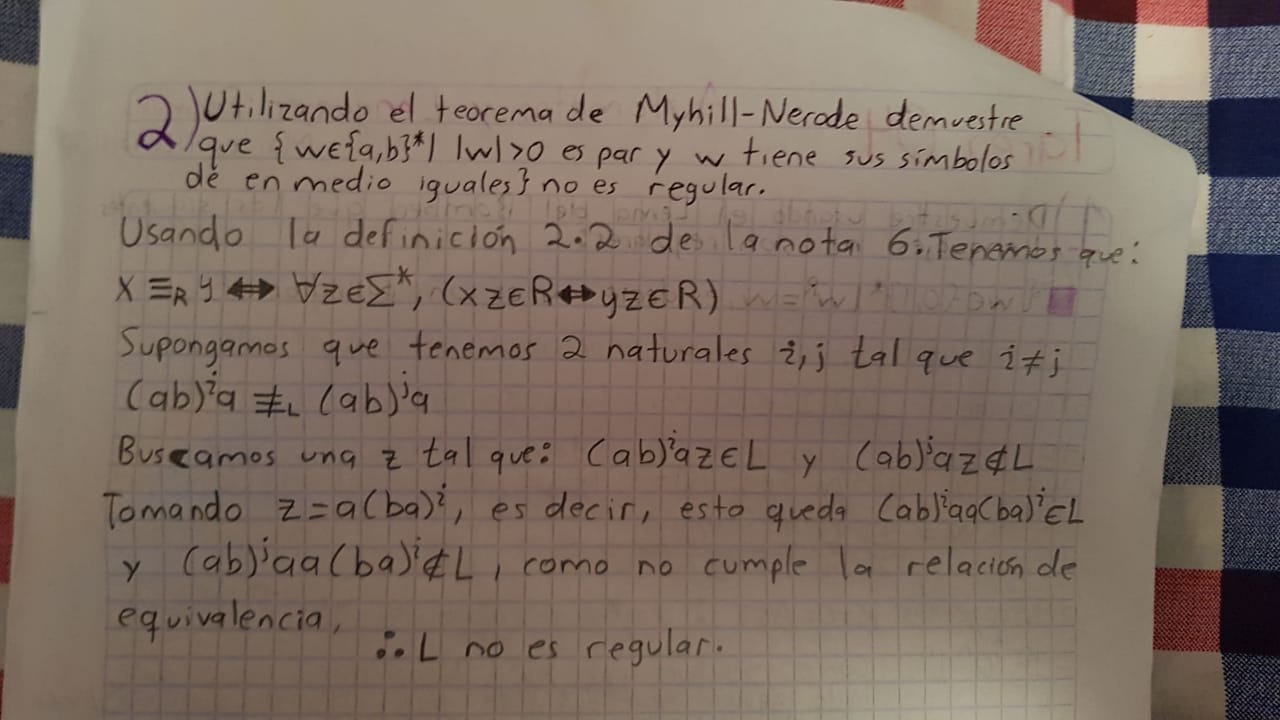 2) Utilizando el teorema de Myhill-Nerode demuestre
que {w∈{a,b}*| |w|>0 es par y w tiene sus símbolos
de en medio iguales} no es regular.
Usando la definición 2.2 de la nota 6. Tenemos que:
x ≡_R y ⟺ ∀z∈Σ*, (xz∈R⟺yz∈R)
Supongamos que tenemos 2 naturales i,j tal que i≠j
(ab)^i a ≢_L (ab)^j a
Buscamos una z tal que: (ab)^i az∈L y (ab)^j az∉L
Tomando z=a(ba)^i, es decir, esto queda (ab)^i aa(ba)^i ∈L
y (ab)^j aa(ba)^i ∉L, como no cumple la relación de
equivalencia,
∴ L no es regular.